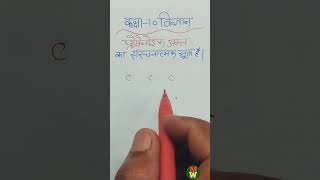 कक्षा-10 विज्ञान
का संरचनात्मक सूत्र है।
C C C C
W